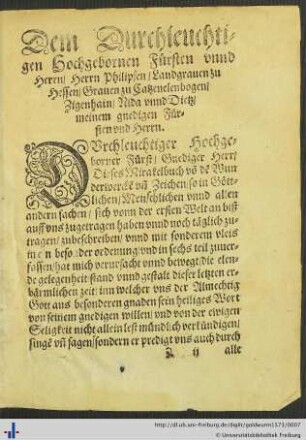 Dem Durchleuchti-
gen Hochgebornen Fürsten vnnd
Herrn/ Herrn Philipsen/ Landgrauen zu
Hessen/ Grauen zu Catzenelenbogen/
Zigenhain/ Nida vnnd Dietz/
meinem gnedigen Für-
sten vnd Herrn.
DVrchleuchtiger Hochge-
borner Fürst/ Gnediger Herr/
Dieses Mirakelbuch võ dē Wun
derwerckē vñ Zeichen/ so in Gött-
lichen/ Menschlichen vnnd allen
andern sachen/ sich vonn der ersten Welt an biß
auff vns zugetragen haben vnnd noch täglich zu-
tragen/ zubeschreiben/ vnnd mit sonderem vleis
in ein besondere ordenung vnd in sechs teil zuuer-
fassen/ hat mich verursacht vnnd bewegt/ die elen-
de gelegenheit stand vnnd gestalt dieser letzten er-
bärmlichen zeit/ inn welcher vns der Almechtig
Gott aus besonderen gnaden sein heiliges Wort
von seinem gnedigen willen/ vnd von der ewigen
Seligkeit nicht allein lest mündlich verkündigen/
singē vñ sagen/ sondern er predigt vns auch durch
A ij alle
http://dl.ub.uni-freiburg.de/diglit/goldwurm1573/0007
© Universitätsbibliothek Freiburg